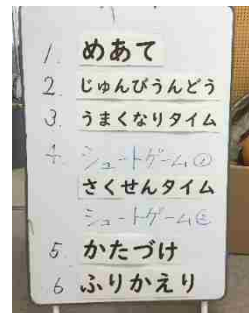 1. めあて
2. じゅんびうんどう
3. うまくなりタイム
4. シュートゲーム①
さくせんタイム
シュートゲーム②
5. かたづけ
6. ふりかえり